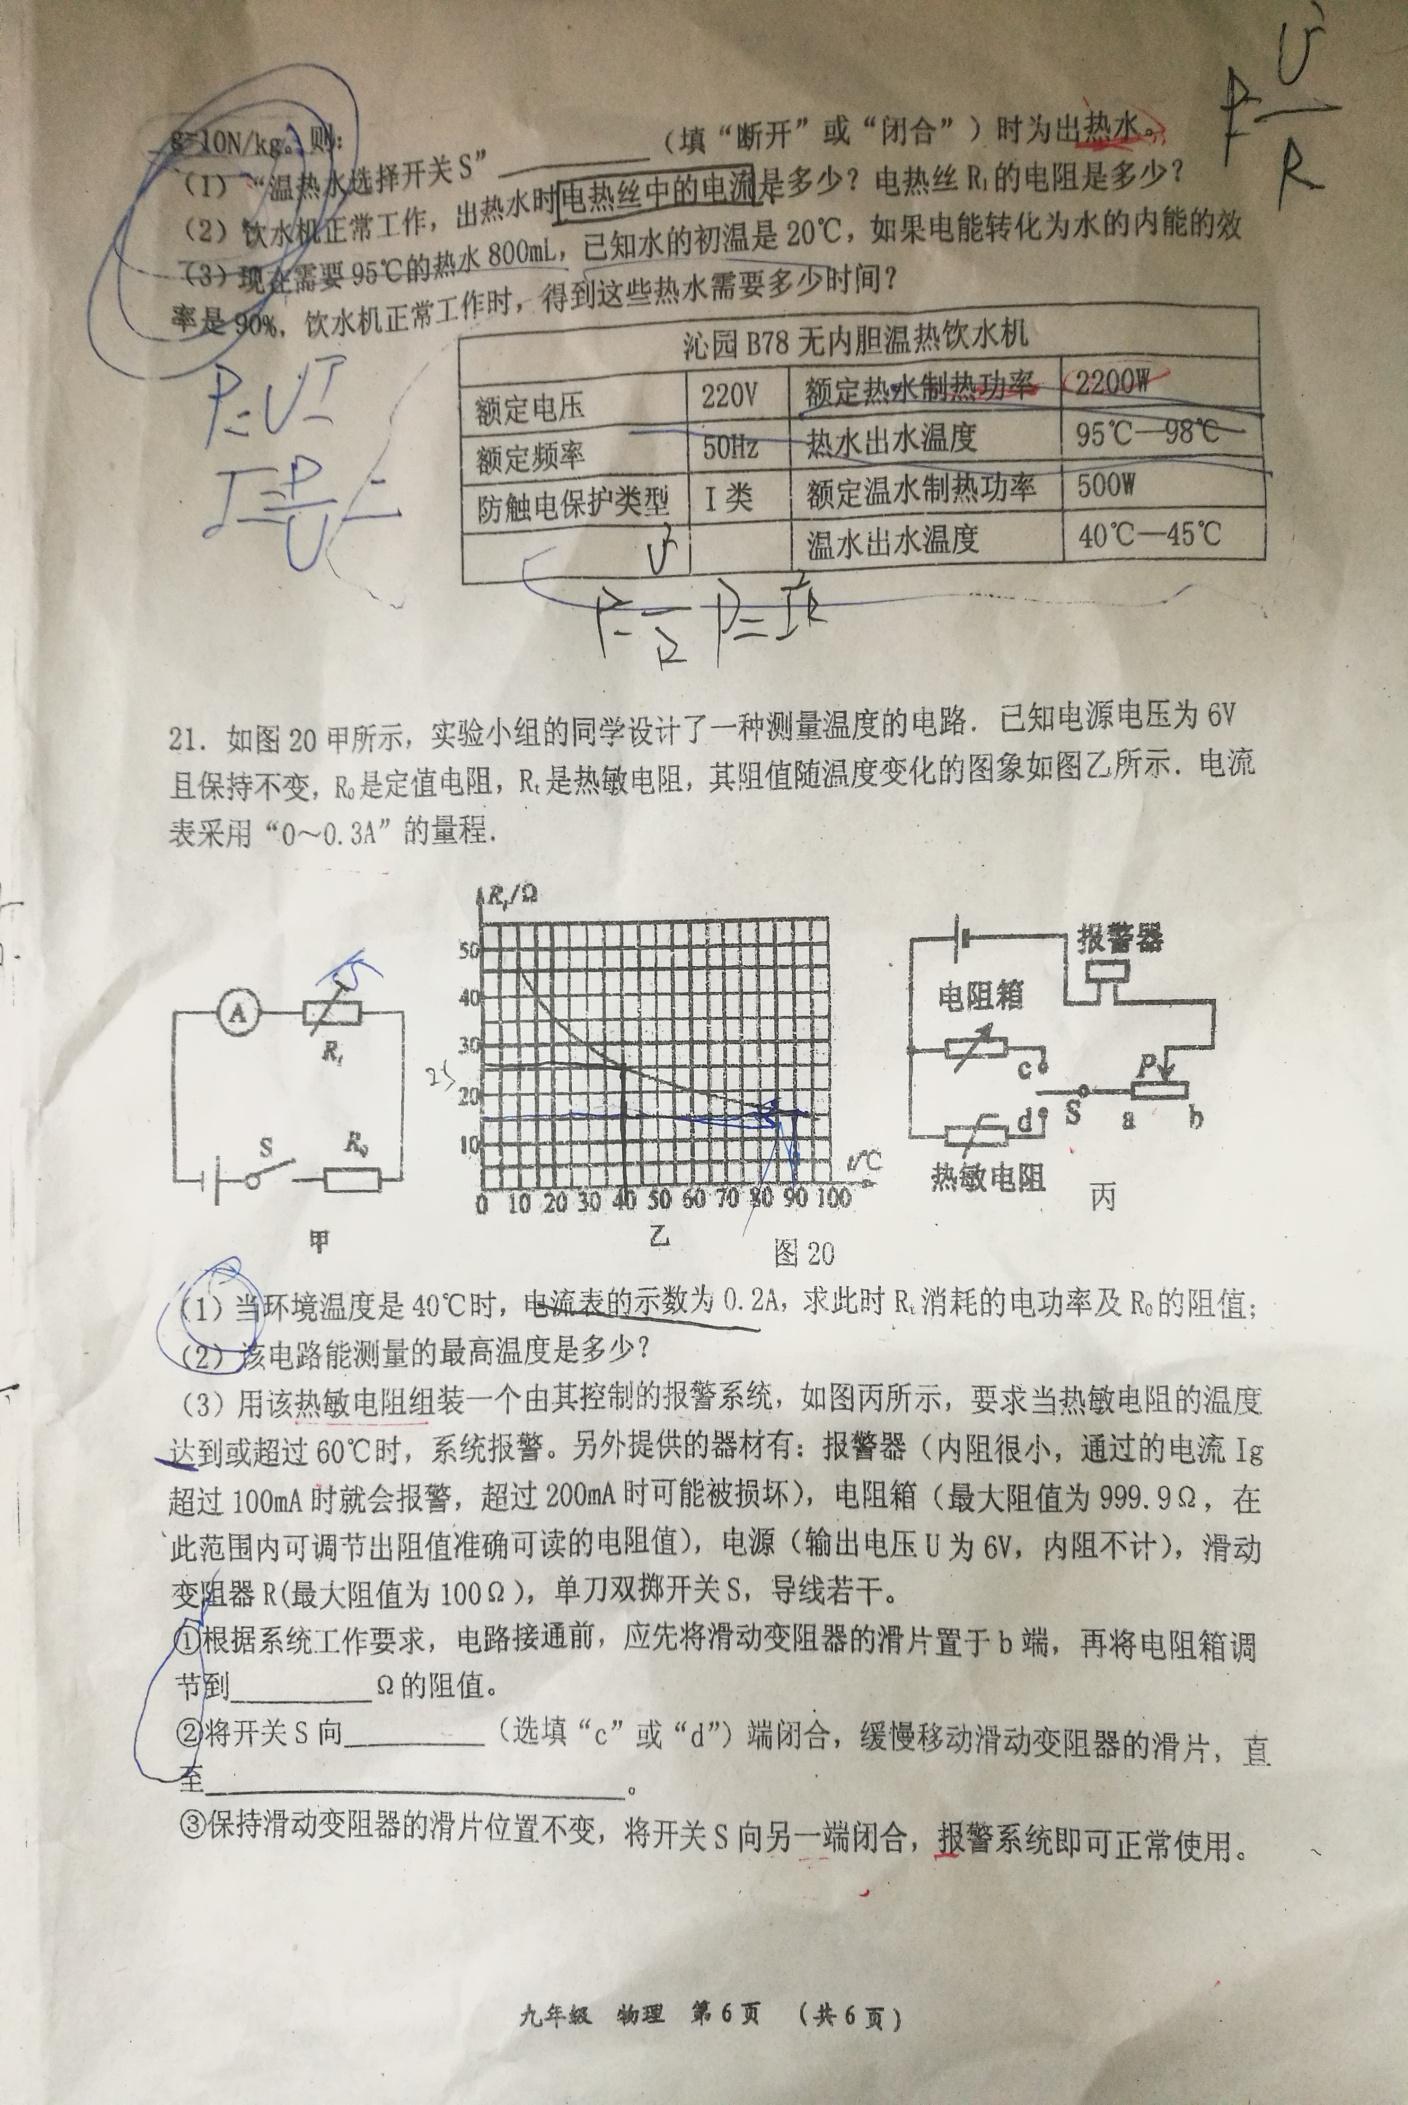 g=10N/kg。则:
(1)“温热水选择开关S” ________ (填“断开”或“闭合”)时为出热水。
(2)饮水机正常工作，出热水时电热丝中的电流是多少？电热丝R₁的电阻是多少？
(3)现在需要95℃的热水800mL，已知水的初温是20℃，如果电能转化为水的内能的效
率是90%，饮水机正常工作时，得到这些热水需要多少时间？
P=U²/R
P=UI
I=P/U=
沁园B78无内胆温热饮水机
额定电压 220V 额定热水制热功率 2200W
额定频率 50Hz 热水出水温度 95℃—98℃
防触电保护类型 I类 额定温水制热功率 500W
温水出水温度 40℃—45℃
P=U²/R P=I²R
21. 如图20甲所示，实验小组的同学设计了一种测量温度的电路. 已知电源电压为6V
且保持不变，R₀是定值电阻，Rₜ是热敏电阻，其阻值随温度变化的图象如图乙所示. 电流
表采用“0～0.3A”的量程.
A Rₜ
S R₀
甲
Rₜ/Ω
50
40
30
25
20
10
0 10 20 30 40 50 60 70 80 90 100 t/℃
乙
报警器
电阻箱
c P
d S a b
热敏电阻
丙
图20
(1)当环境温度是40℃时，电流表的示数为0.2A，求此时Rₜ消耗的电功率及R₀的阻值；
(2)该电路能测量的最高温度是多少？
(3)用该热敏电阻组装一个由其控制的报警系统，如图丙所示，要求当热敏电阻的温度
达到或超过60℃时，系统报警。另外提供的器材有：报警器（内阻很小，通过的电流Ig
超过100mA时就会报警，超过200mA时可能被损坏），电阻箱（最大阻值为999.9Ω，在
此范围内可调节出阻值准确可读的电阻值），电源（输出电压U为6V，内阻不计），滑动
变阻器R(最大阻值为100Ω)，单刀双掷开关S，导线若干。
①根据系统工作要求，电路接通前，应先将滑动变阻器的滑片置于b端，再将电阻箱调
节到________Ω的阻值。
②将开关S向________（选填“c”或“d”）端闭合，缓慢移动滑动变阻器的滑片，直
至________________________。
③保持滑动变阻器的滑片位置不变，将开关S向另一端闭合，报警系统即可正常使用。
九年级 物理 第6页 （共6页）